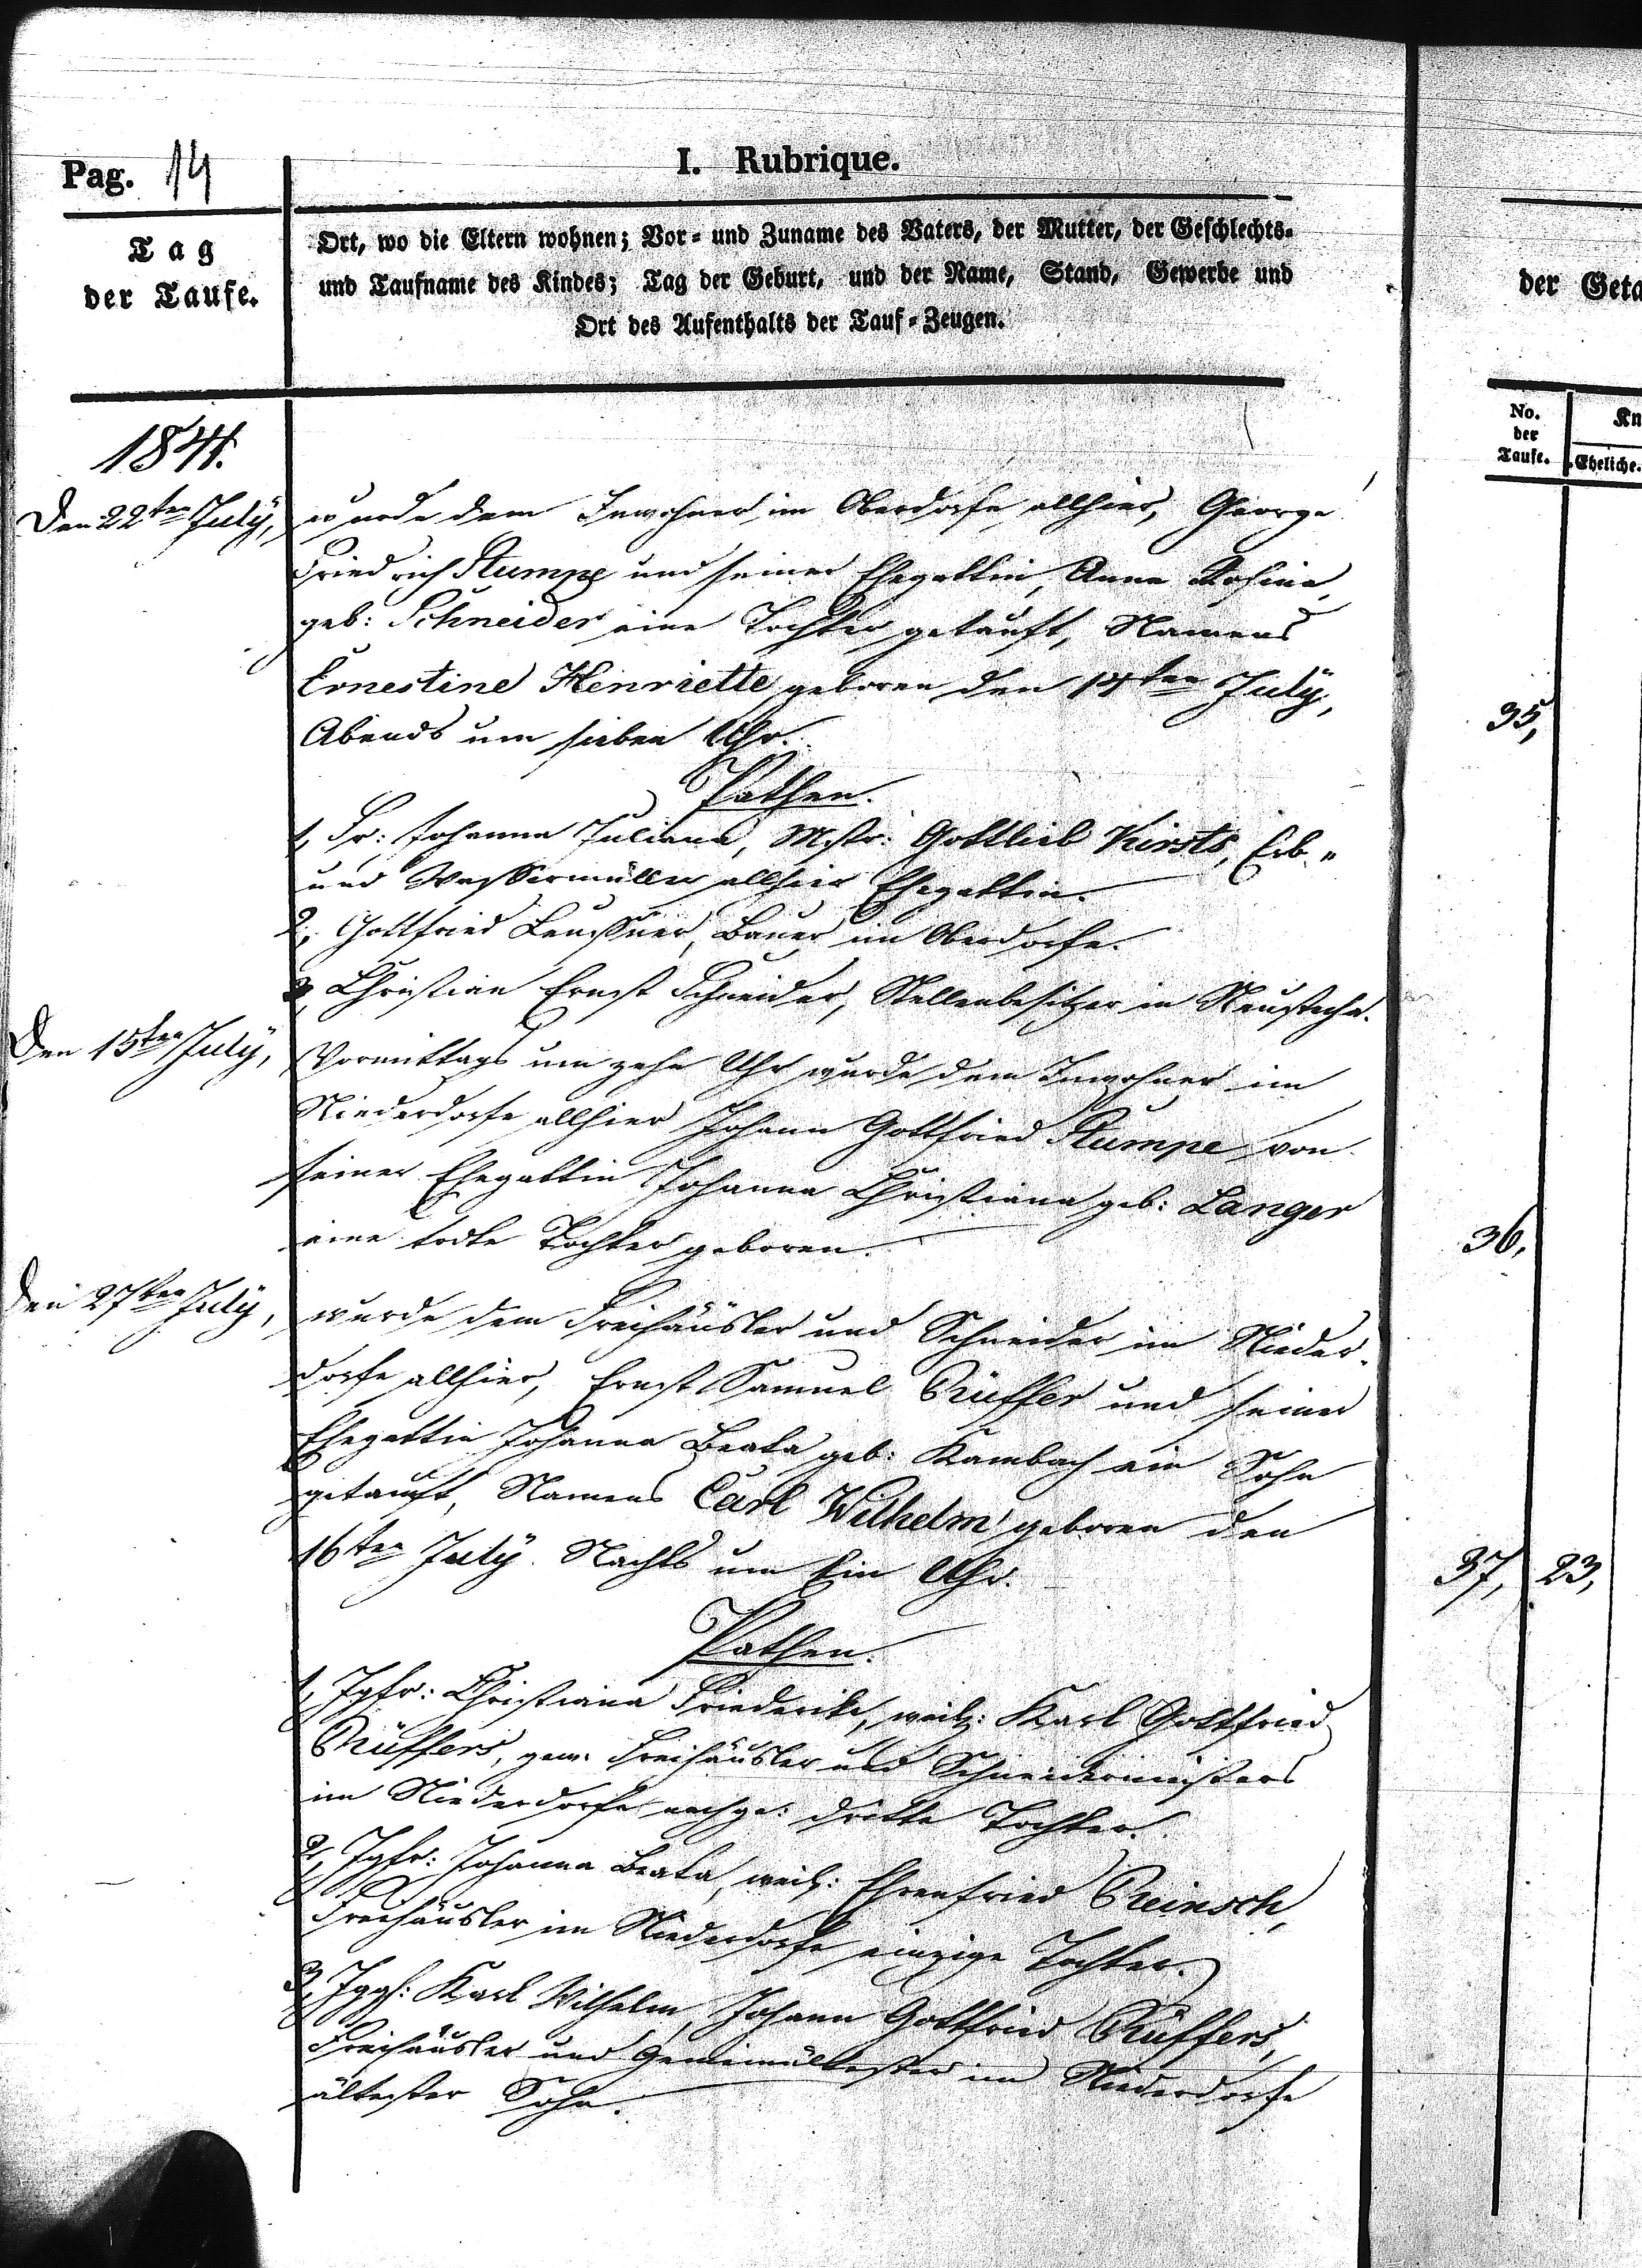 Pag. 14
I. Rubrique.
Tag
der Taufe.
Ort, wo die Eltern wohnen; Vor- und Zuname des Vaters, der Mutter, der Geschlechts-
und Taufname des Kindes; Tag der Geburt, und der Name, Stand, Gewerbe und
Ort des Aufenthalts der Tauf-Zeugen.
der Geta
No.
der
Taufe.
Kn
Eheliche.
1841.
Den 22ten July, wurde dem Inwohner im Oberdorfe allhier, George
Friedrich Stumpe und seiner Ehegattin, Anna Rosina,
geb: Schneider eine Tochter getauft, Namens
Ernestine Henriette, geboren den July,
Abends um sieben Uhr.
35,
Pathen.
1, Fr: Johanna Juliana, Mstr: Gottlieb Kirsts, Erb-
und Wassermüller allhier Ehegattin.
2, Gottfried Leussner, Bauer im Oberdorfe.
3, Christian Ernst Schneider, Stellenbesitzer in
Den 15ten July, Vormittags um zehn Uhr wurde dem Inwohner im
Niederdorfe allhier Johann Gottfried Stumpe von
seiner Ehegattin Johanna Christiana geb: Langer
eine todte Tochter geboren.
36,
Den 27ten July, wurde dem Freihäusler und Schneider im Nieder-
dorfe allhier, Ernst Samuel Rüffer und seiner
Ehegattin Johanna Beata geb: Kambach ein Sohn
getauft, Namens Carl Wilhelm geboren den
16ten July. Nachts um Ein Uhr.
37, 23,
Pathen.
1, Jgfr: Christiana Friederike, weil: Karl Gottfried
Rüffers, gew. Freihäusler und Schneidermeisters
im Niederdorfe nachge: dritte Tochter.
2, Jgfr: Johanna Beata, weil: Ehrenfried Reinsch,
Freihäusler im Niederdorfe einzige Tochter.
3, Jggs: Karl Wilhelm, Johann Gottfried Rüffers,
Freihäusler und im Niederdorfe
ältester Sohn.